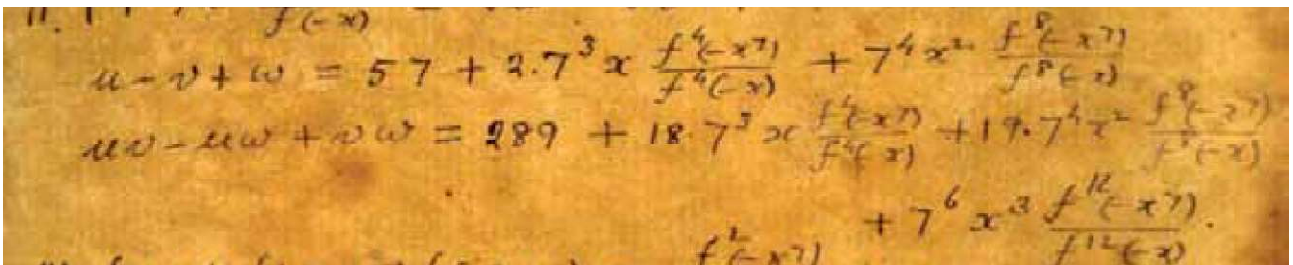 f(-x)
u - v + w = 57 + 2.7³x f⁴(-x⁷)/f⁴(-x) + 7⁴x² f⁸(-x⁷)/f⁸(-x)
uv - uw + vw = 289 + 18.7³x f⁴(-x⁷)/f⁴(-x) + 19.7⁴x² f⁸(-x⁷)/f⁸(-x)
+ 7⁶x³ f¹²(-x⁷)/f¹²(-x).
f²(-x⁷)